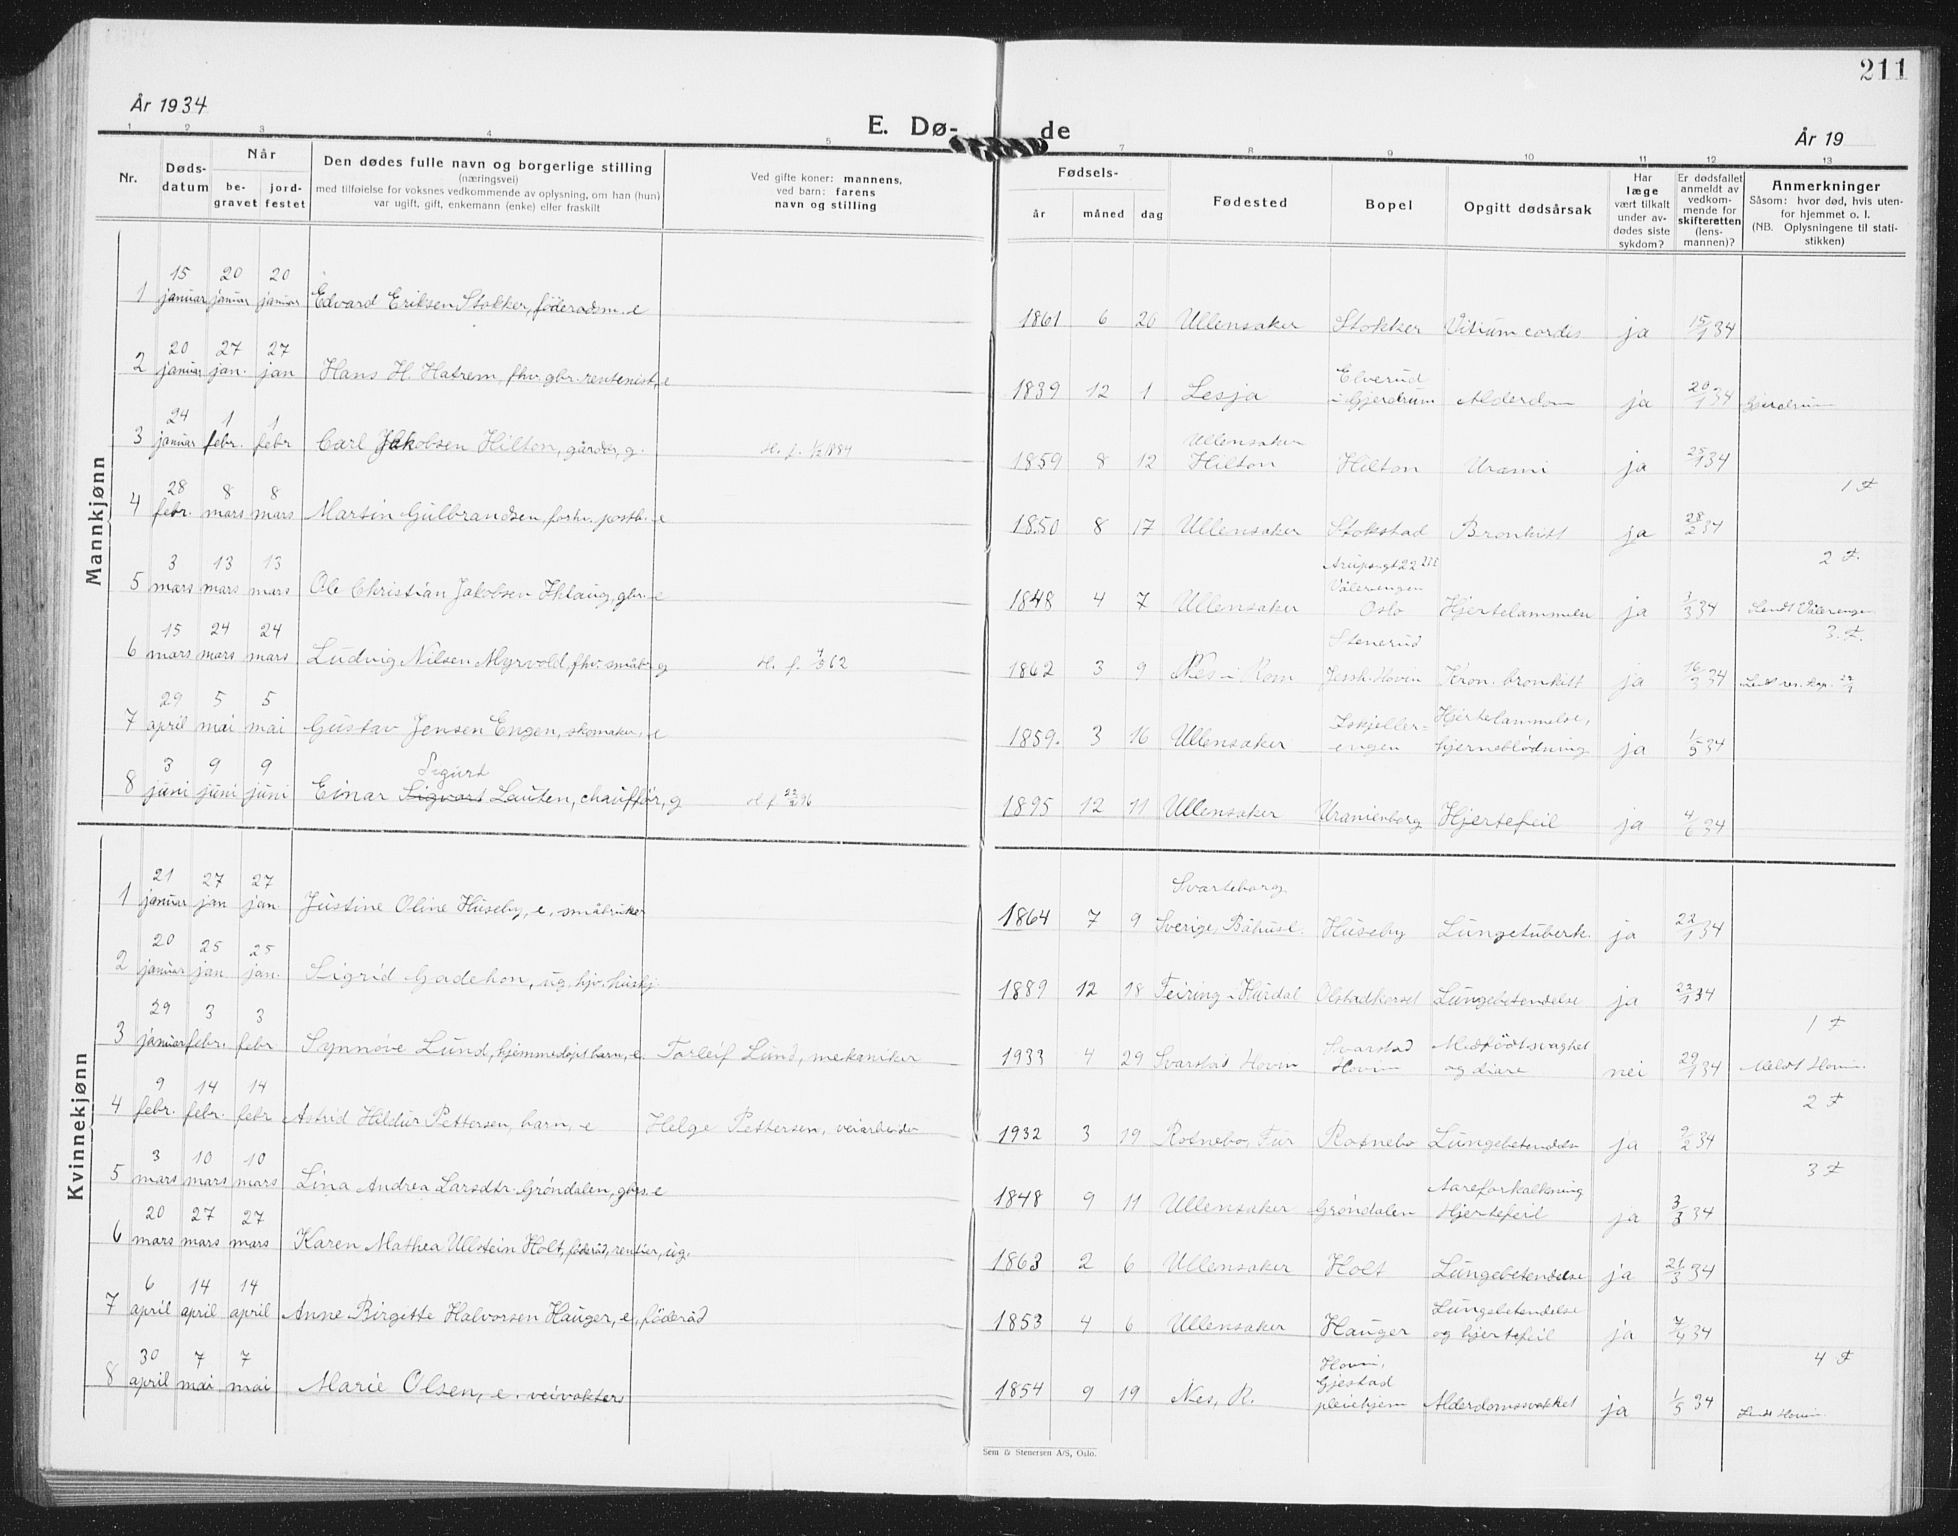 211
År 1934
E. Dø- de
År 19
1 2 3 4 5 7 8 9 10 11 12 13
Nr.
Døds-
datum
Når
be-
gravet
jord-
festet
Den dødes fulle navn og borgerlige stilling
(næringsvei)
med tilføielse for voksnes vedkommende av oplysning, om han (hun)
var ugift, gift, enkemann (enke) eller fraskilt
Ved gifte koner: mannens,
ved barn: farens
navn og stilling
Fødsels-
år måned dag
Fødested
Bopel
Opgitt dødsårsak
Har
læge
vært tilkalt
under av-
dødes siste
sykdom?
Er dødsfallet
anmeldt av
vedkom-
mende for
skifteretten
(lens-
mannen)?
Anmerkninger
Såsom: hvor død, hvis uten-
for hjemmet o. l.
(NB. Oplysningene til stati-
stikken)
Mannkjønn
15 20 20
1 januar januar januar Edvard Eriksen Stokker, föderadsm. e
1861 6 20 Ullensaker Stokker Vitium cordis ja 15/1 34
20 27 27
2 januar jan. jan Hans H. Hatrem, fhv. gbr. rentenist, e
Elverud
1839 12 1 Lesja i Gjerdrum Alderdom ja 20/1 34 Gjerdrum
24 1 1
3 januar febr. febr Carl Jakobsen Hilton, gårdbr, g. H. f. 1/2 1884
Ullensaker
1859 8 12 Hilton Hilton Uræmi ja 25/1 34
1 F
28 8 8
4 febr. mars mars Martin Gulbrandsen, forhv. postb. e
1850 8 17 Ullensaker Stokstad Bronkitt ja 28/2 34
2 F.
3 13 13
5 mars mars mars Ole Christian Jakobsen Hklaug, gbr. e
Arupsgt 22
Vålerengen
1848 4 7 Ullensaker Oslo Hjertelammelse ja 3/3 34 Sendt Vålerengen
3. F.
15 24 24
6 mars mars mars Ludvig Nilsen Myrvold, fhv. småbr. g H. f. 62
Stenerud
1862 3 9 Nes i Rom Jessh. Hovin Kron. bronkitt ja 16/3 34
29 5 5
7 april mai mai Gustav Jensen Engen, skomaker, e
Iskjeller- Hjertelammelse,
1859. 3 16 Ullensaker engen hjerneblödning ja 1/5 34
3 9 9 Sigurd
8 juni juni juni Einar Sigvart Lauten, chaufför, g H. f 96
1895 12 11 Ullensaker Uranienborg Hjertefeil ja 4/6 34
Kvinnekjønn
21 27 27
1 januar jan jan. Justine Oline Huseby, e. småbruker
Svarteborg
1864 7 9 Sverige, Båhusl. Huseby Lungetuberk. ja 22/1 34
20 25 25
2 januar jan jan. Sigrid Gadehon, ug. hjv. hushj.
1889 12 18 Feiring i Hurdal Olstadkorset Lungebetendelse ja 22/1 34
1 F
29 3 3
3 januar febr. febr Synnøve Lund, hjemmedøpt barn, e. Torleif Lund, mekaniker
Svarstad Medfödt svaghet
1933 4 29 Svarstad Hovin Hovin og diare nei 29/1 34 Meldt Hovin.
2 F
9 14 14
4 febr. febr. febr Astrid Hildur Pettersen, barn, e Helge Pettersen, veiarbeider
1932 3 19 Rotnebo, Fur Rotnebo Lungebetendelse ja 9/2 34
3 F
3 10 10
5 mars mars mars Lina Andrea Larsdtr. Gröndalen, gbrs. e
Aareforkalkning
1848 9 11 Ullensaker Gröndalen Hjertefeil ja 3/3 34
20 27 27
6 mars mars mars Karen Mathea Ullstein Holt, föderåd, rentier, ug.
1863 2 6 Ullensaker Holt Lungebetendelse ja 21/3 34
6 14 14
7 april april april Anne Birgitte Halvorsen Hauger, e, föderåd
Lungebetendelse
1853 4 6 Ullensaker Hauger og hjertefeil ja 7/4 34
4 F
30 7 7
8 april mai mai Marie Olsen, e. veivokters
Hovin,
Gjestad
1854 9 19 Nes, R. pleiehjem Alderdomssvakhet ja 1/5 34 Sendt Hovin.
Sem & Stenersen A/S, Oslo.